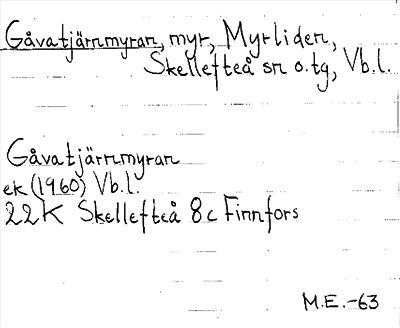 Gåvatjärnmyran, myr, Myrliden,
Skellefteå sn o. tg, Vb.l.
Gåvatjärnmyran
ek (1960) Vb.l.
22K Skellefteå 8c Finnfors
M.E.-63